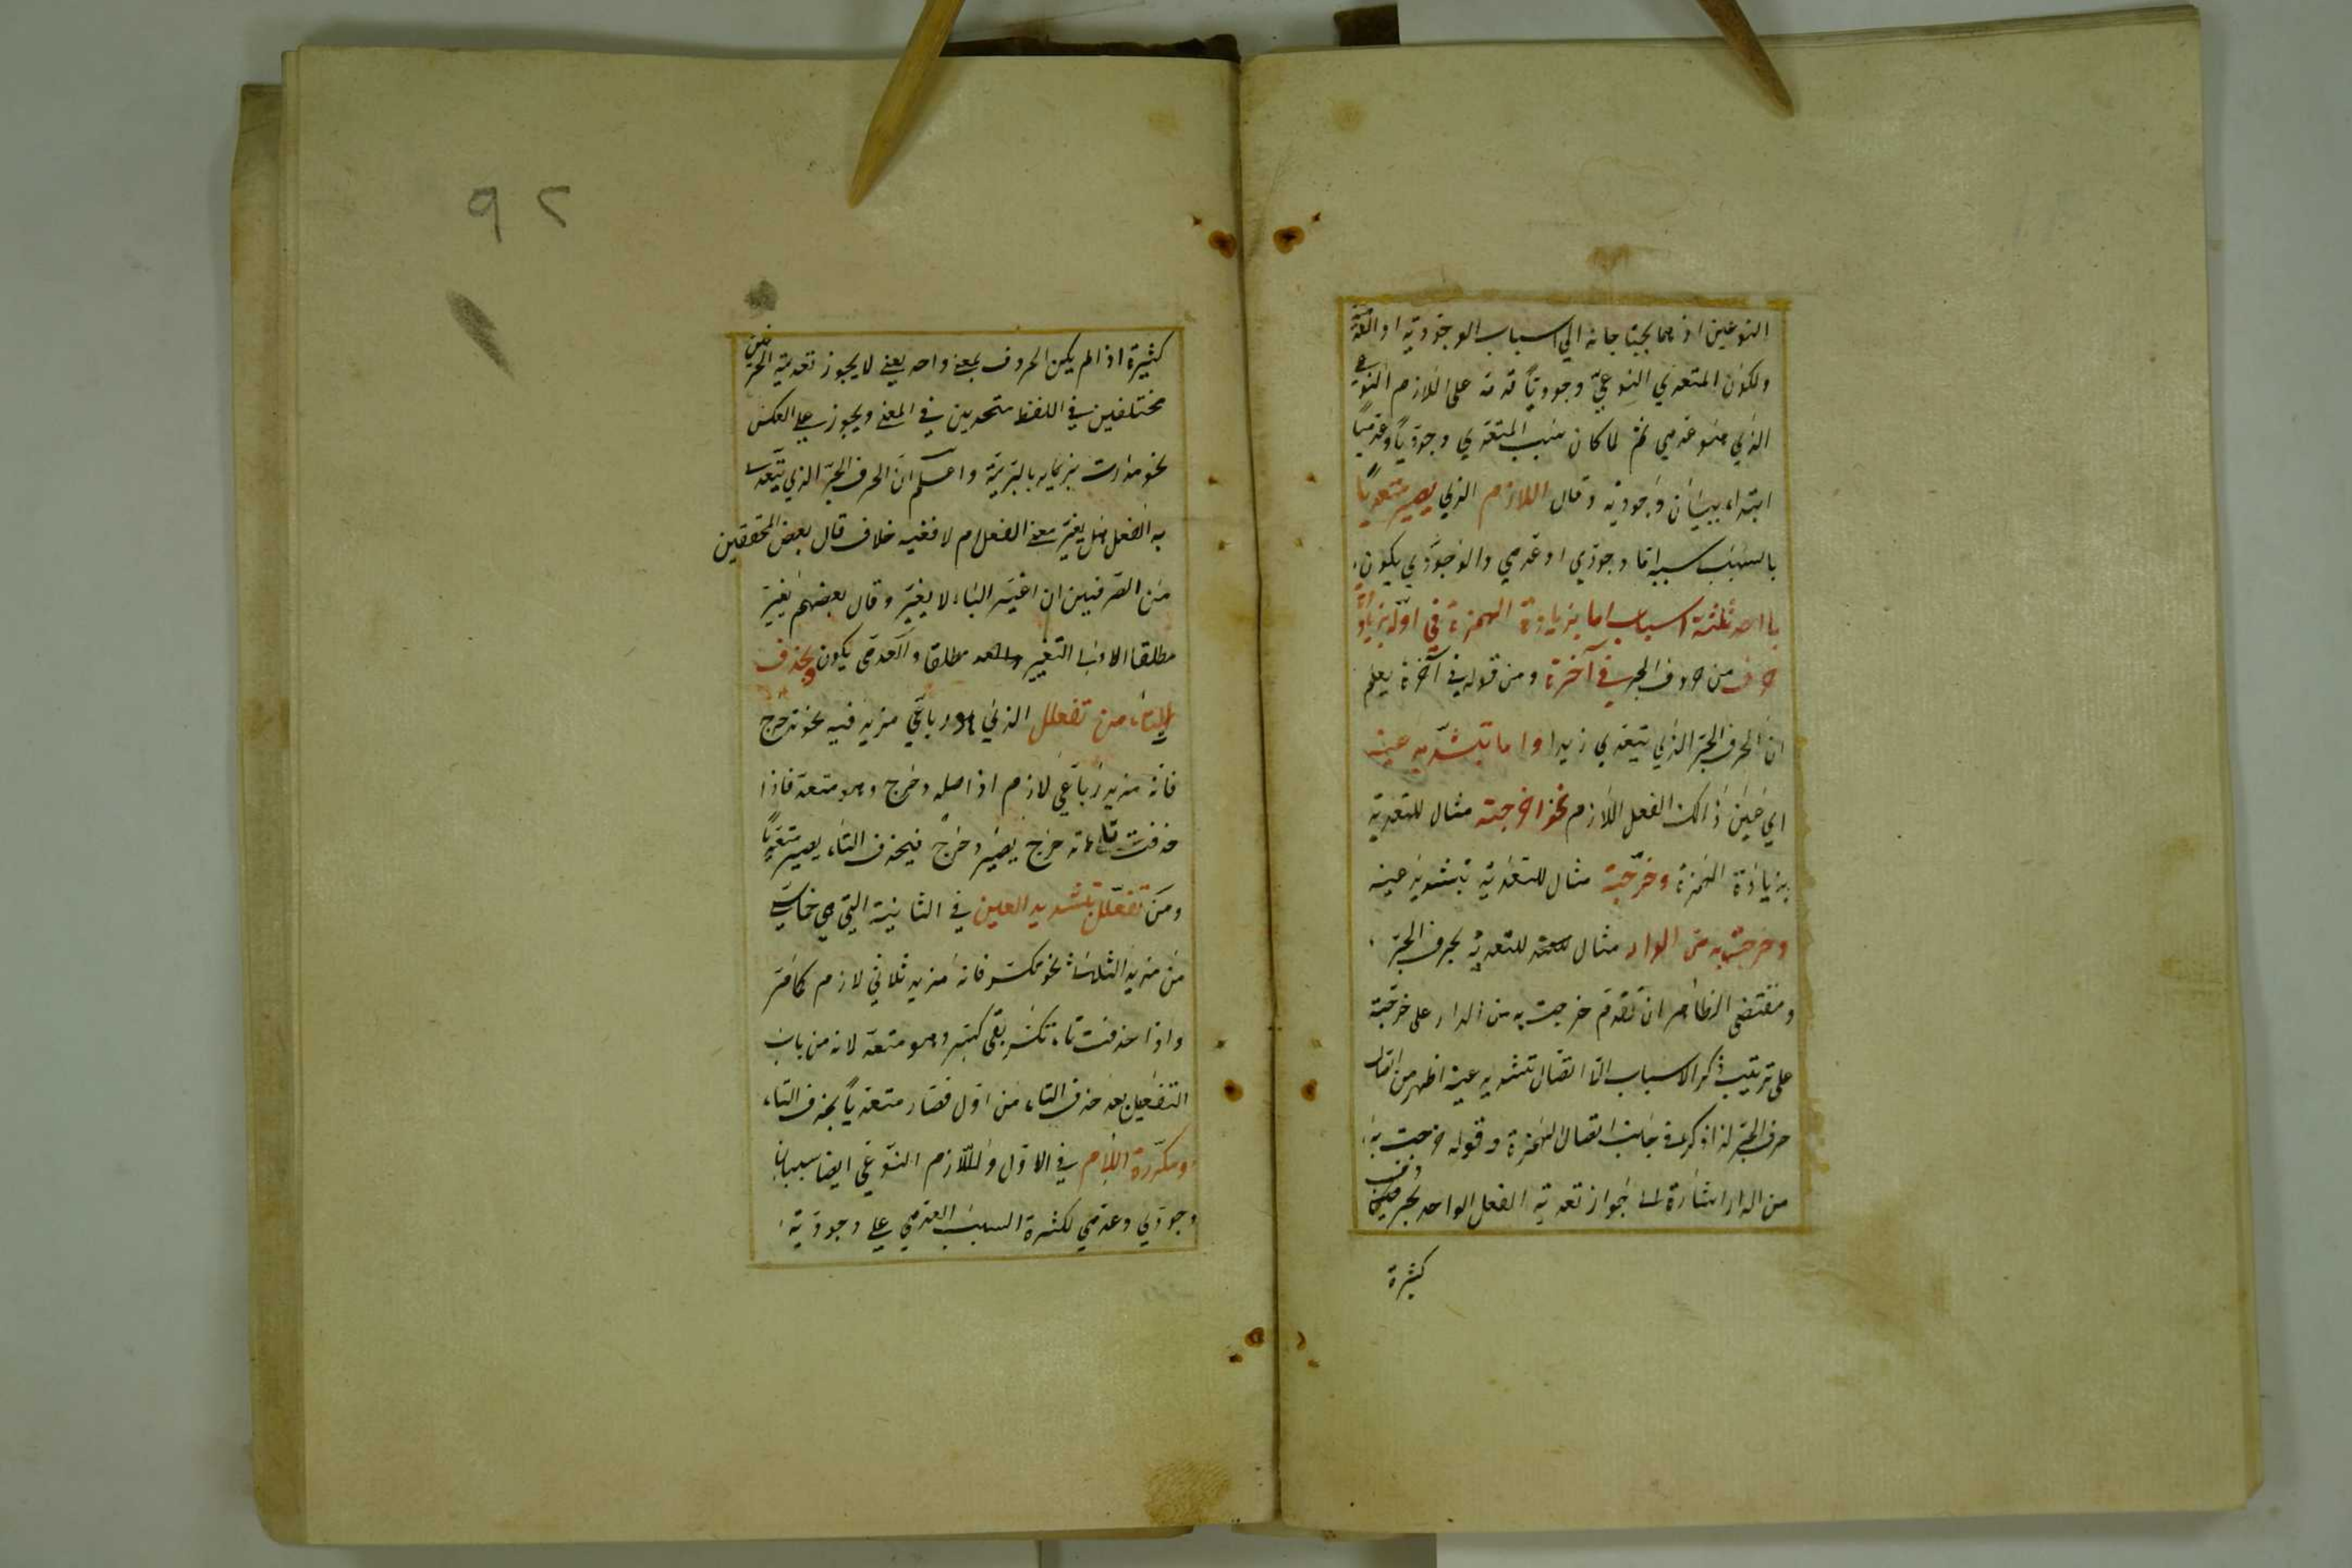 النوعين اذ هما يحتاجانه الي اسباب الوجودية او العدمية
ولكون المتعدي النوعيّ وجودياً قدمه على اللازم النوعي
الذي هو عدمي ثم لما كان سبب المتعدي وجودياً وعدمياً
ابتداء ببيان وجوديه وقال اللازم الذي يصير متعدياً
بالسبب سببه اما وجودي او عدمي والوجودي يكون
باحد ثلثة اسباب اما بزيادة الهمزة في اوله بزيادة
حرف من حروف الجر في آخره ومن قوله في آخره يعلم
ان الحرف الجرّ الذي يتعدي زيدا واما بتشديد عينه
اي عين ذالك الفعل اللازم نحو اخرجته مثال للتعدية
بزيادة الهمزة وخرّجته مثال للتعدية بتشديد عينه
وخرجت به من الدار مثال للتعدية بحرف الجرّ
ومقتضى الظاهر ان تقدم خرجت به من الدار على خرّجته
على ترتيب ذكر الاسباب الا اتصال تشديد عينه اظهر من اتصال
حرف الجرّ لذا ذكره في جانب اتصال الهمزة وقوله خرجت به
من الدار اشارة لى جواز تعدية الفعل الواحد بحرفين
كثيرة
٩٢
كثيرة اذا لم يكن الحروف بمعنى واحد يعني لا يجوز تعدية الحرفين
مختلفين في اللفظ متحدين في المعنى ويجوز على العكس
نحو مررت بزيد بالبرّيّة واعلم انّ الحرف الجرّ الذي يتعدى
به الفعل هل يغيّر معنى الفعل ام لا ففيه خلاف قال بعض المحققين
من الصرفيين ان اغير الباء لا يغيّر وقال بعضهم يغيّر
مطلقا الاولى التغيير مطلقا والعدمي يكون بحذف
التاء من تفعلل الذي هو رباعي مزيد فيه نحو تدحرج
فانه مزيد رباعي لازم اذ اصله دحرج وهو متعد فاذا
حذفت تاء تدحرج يصير دحرج فيحذف التاء يصير متعدياً
ومن تفعّل بتشديد العين في الثانية التي هي خماسي
من مزيد الثلاث نحو تكسّر فانه مزيد ثلاثي لازم كما مرّ
واذا حذفت تاء تكسّر بقى كسّر وهو متعد لانه من باب
التفعيل بعد حذف التاء من اوّل فصار متعدياً بحذف التاء
ومكرّرة اللام في الاول وللّازم النوعي ايضا سببان
وجودي وعدمي لكثرة السبب العدمي على وجوديّة